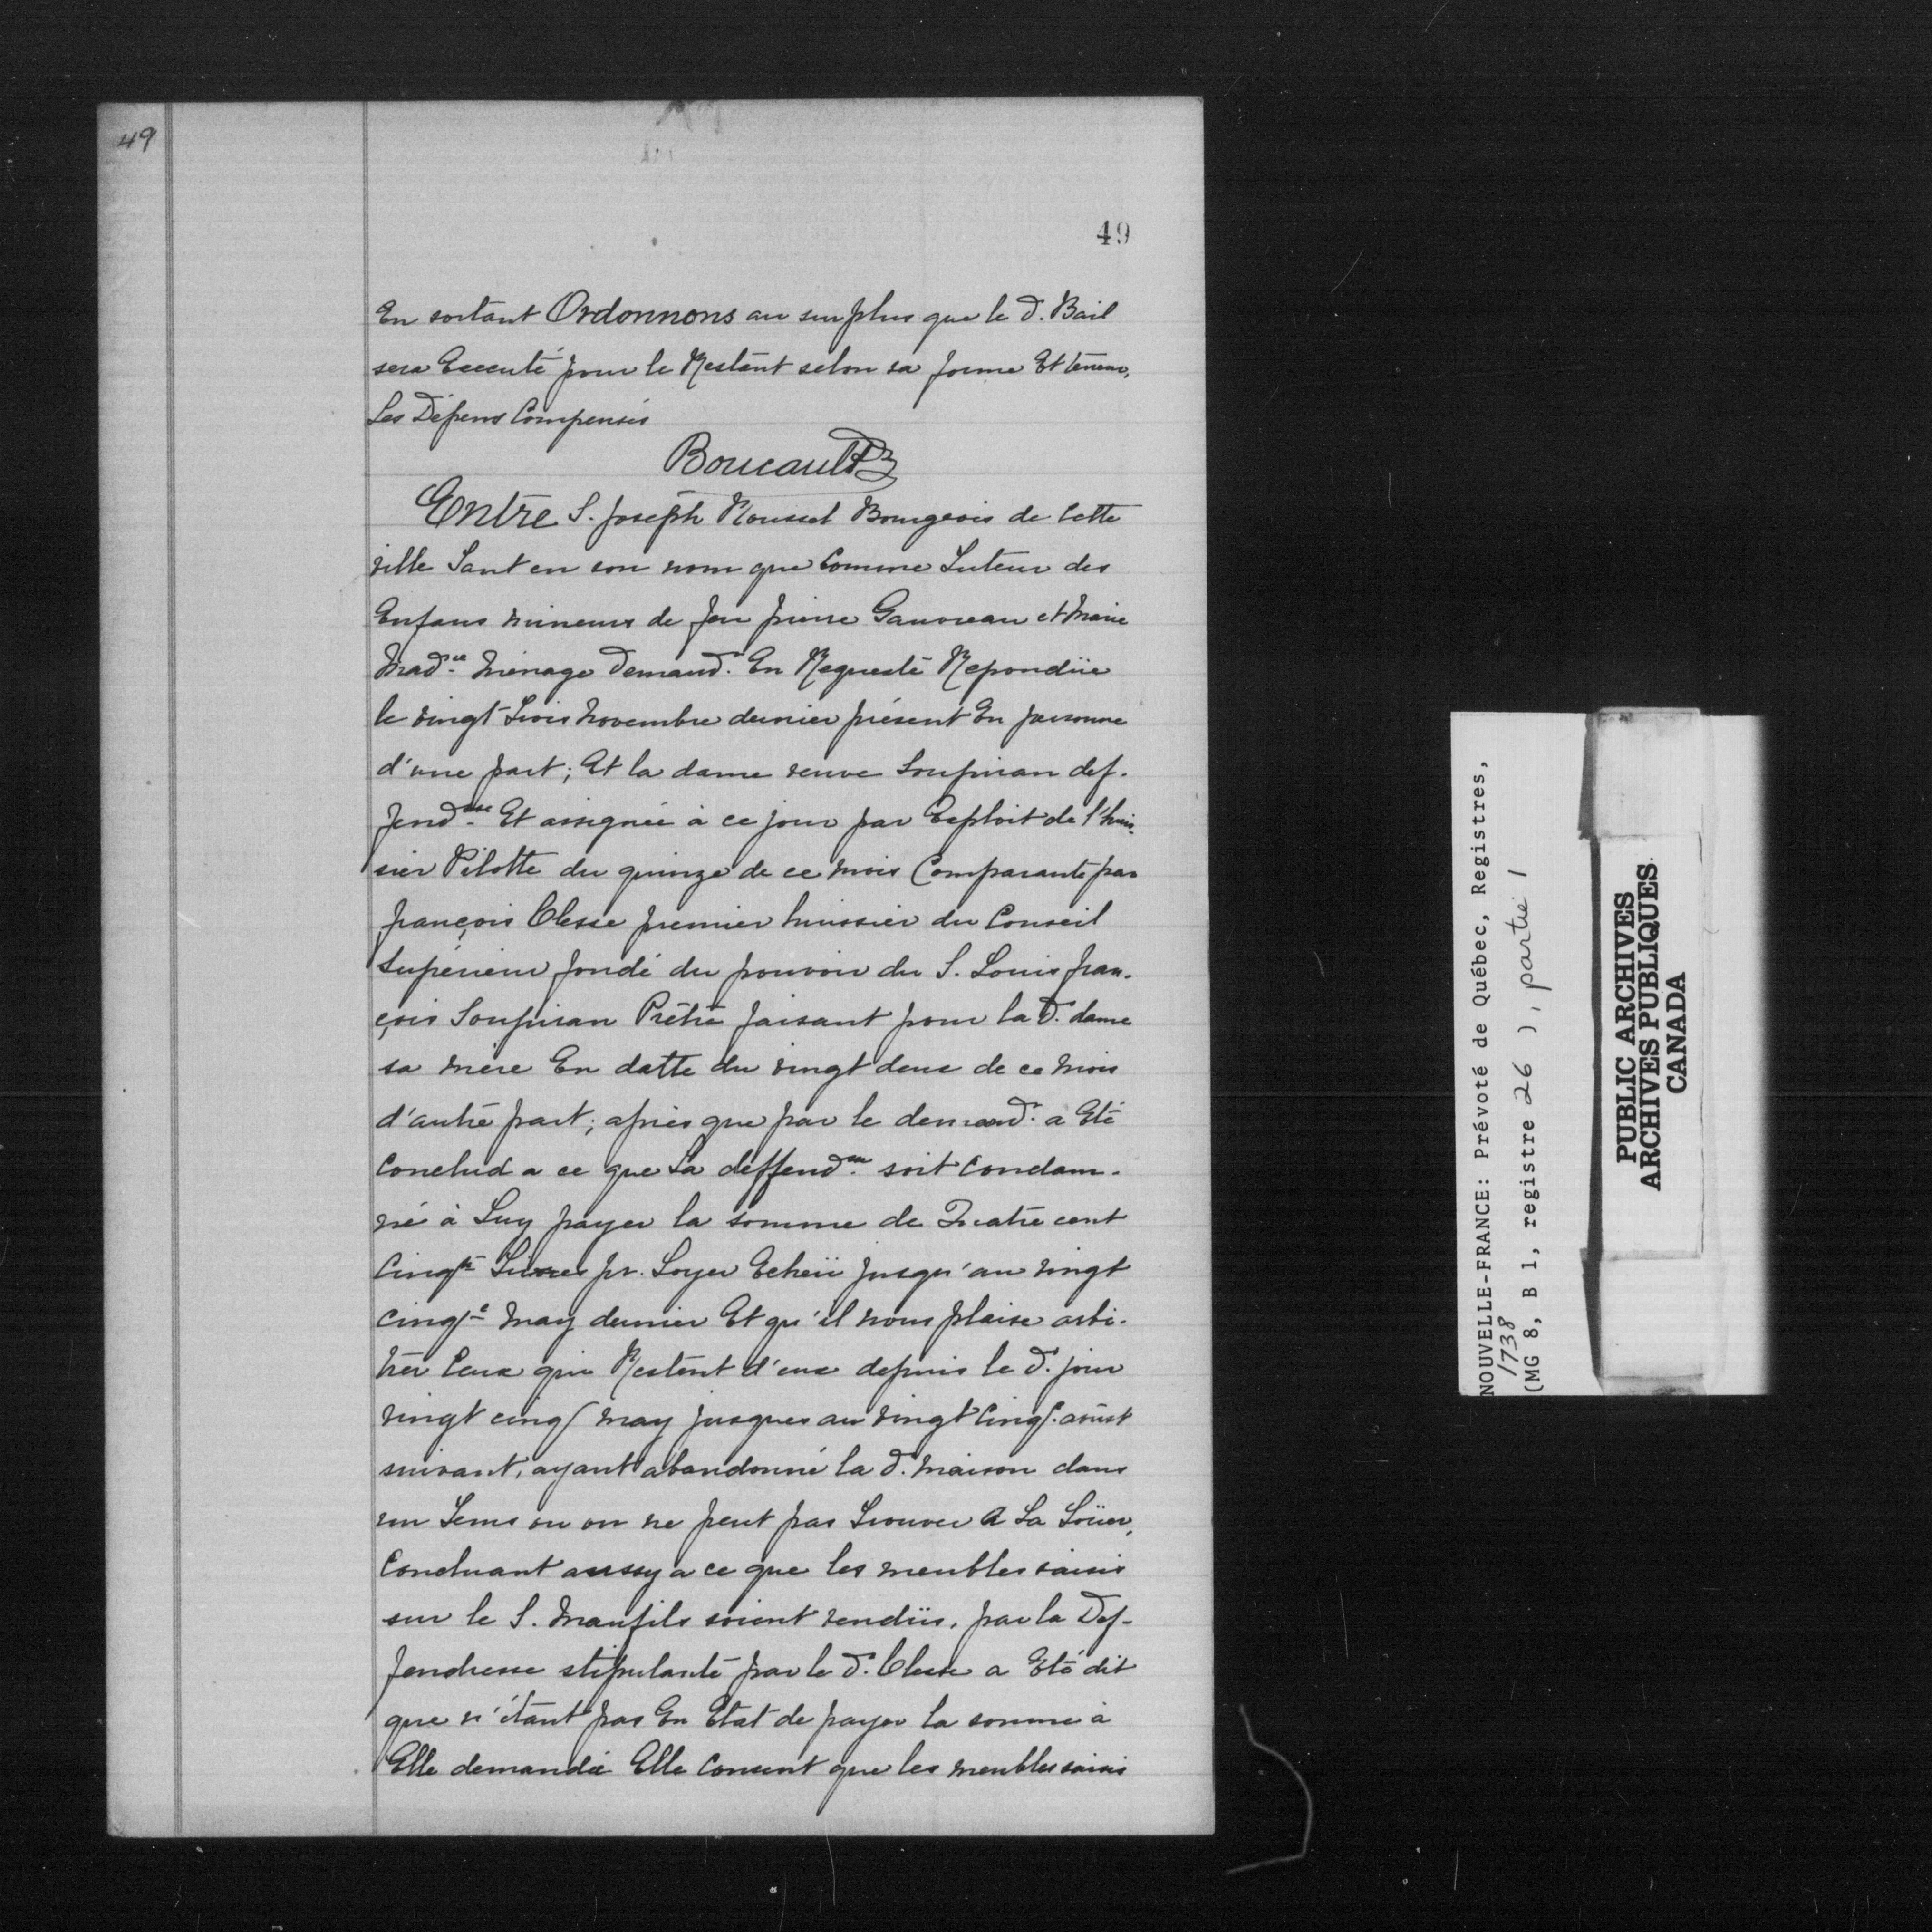 49
49
En sortant Ordonnons au surplus que le d. Bail
sera Executé pour le Restant selon sa forme Et teneur,
Les Dépens Compensés
Boucault
Entre S. Joseph Roussel Bourgeois de cette
ville Tant en son nom que Comme Tuteur des
Enfans mineurs de feu pierre Gauvreau et Marie
Mad.ne Ménage Demand. En Requeste Repondüe
le vingt Trois Novembre dernier présent En personne
d'une part; Et la dame veuve Soupiran def-
fend.sse Et assignée à ce jour par Exploit de l'huis-
sier Pilotte du quinze de ce mois Comparante par
françois Clesse premier huissier du Conseil
Supérieur fondé du pouvoir du S. Louis fran-
çois Soupiran Prêtre faisant pour la d. dame
sa mère En datte du vingt deux de ce mois
d'autre part; après que par le demand. a Eté
Conclud a ce que La deffend.sse soit Condam-
né à Luy payer la somme de Quatre cent
Cinq.te Livres pr. Loyer Echeü jusqu'au vingt
cinq.e May dernier Et qu'il nous plaise arbi-
trer Ceux qui Restent d'eux depuis le d. jour
vingt cinq May jusques au vingt Cinq. aoust
suivant, ayant abandonné la d. Maison dans
un Tems ou on ne peut pas Trouver A La Loüer,
Concluant aussy a ce que les meubles saisis
sur le S. Maufils soient vendüs, par la Def-
fendresse stipulante par le d. Clesse a Eté dit
que n'étant pas En Etat de payer la somme à
Elle demandée Elle Consent que les meubles saisis
NOUVELLE-FRANCE: Prévoté de Québec, Registres,
1738
(MG 8, B 1, registre 26 ), partie 1
PUBLIC ARCHIVES
ARCHIVES PUBLIQUES
CANADA